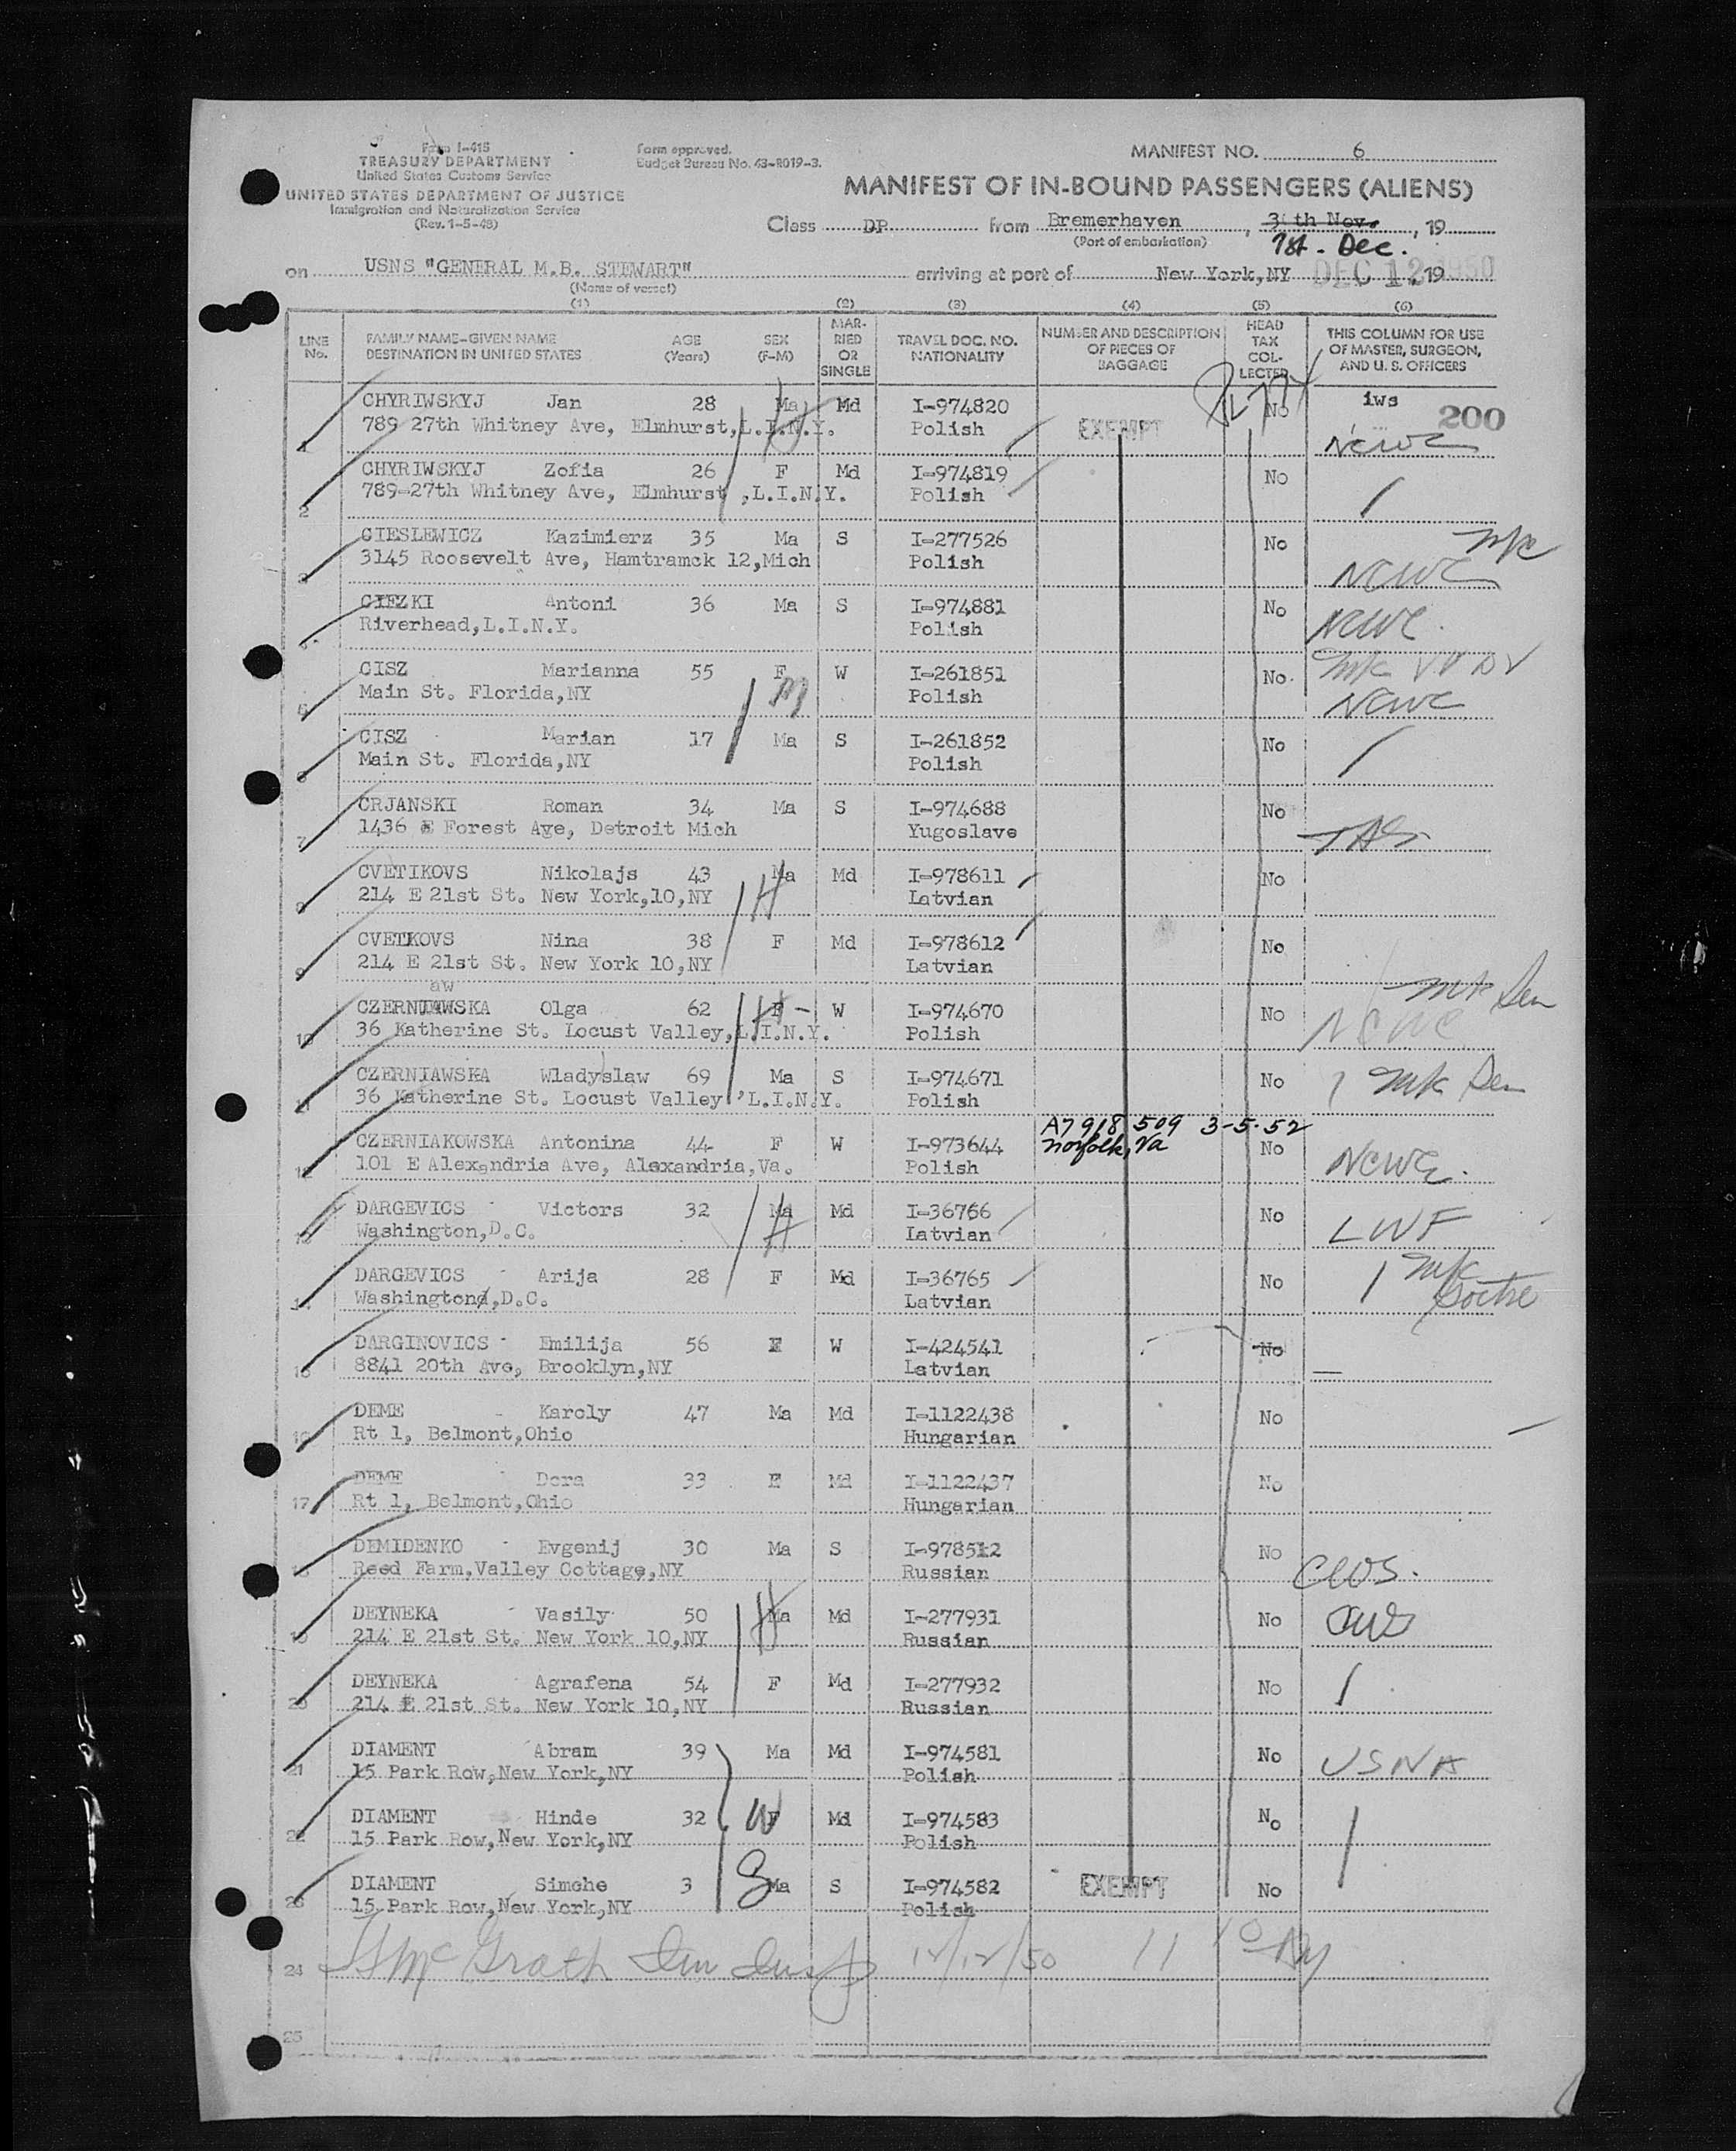 Form I-415
TREASURY DEPARTMENT
United States Customs Service
UNITED STATES DEPARTMENT OF JUSTICE
Immigration and Naturalization Service
(Rev. 1-5-48)
Form approved.
Budget Bureau No. 43-R019-3.
MANIFEST NO. 6
MANIFEST OF IN-BOUND PASSENGERS (ALIENS)
Class DP from Bremerhaven, 30th Nov., 19
(Port of embarkation) 1st. Dec.
on USNS "GENERAL M.B. STEWART" arriving at port of New York, NY DEC 12 1950 19
(Name of vessel)
(1) (2) (3) (4) (5) (6)
LINE No. FAMILY NAME—GIVEN NAME DESTINATION IN UNITED STATES AGE (Years) SEX (F-M) MARRIED OR SINGLE TRAVEL DOC. NO. NATIONALITY NUMBER AND DESCRIPTION OF PIECES OF BAGGAGE HEAD TAX COLLECTED THIS COLUMN FOR USE OF MASTER, SURGEON, AND U. S. OFFICERS
iws 200
1 CHYRIWSKYJ Jan 28 Ma Md I-974820 No
789 27th Whitney Ave, Elmhurst,L.I.N.Y. Polish EXEMPT NCWC
2 CHYRIWSKYJ Zofia 26 F Md I-974819 No
789-27th Whitney Ave, Elmhurst ,L.I.N.Y. Polish
3 CIESLEWICZ Kazimierz 35 Ma S I-277526 No mk
3145 Roosevelt Ave, Hamtramck 12,Mich Polish NCWC
4 CIEZKI Antoni 36 Ma S I-974881 No
Riverhead,L.I.N.Y. Polish NCWC.
5 CISZ Marianna 55 F W I-261851 No. mk
Main St. Florida,NY M Polish NCWC
6 CISZ Marian 17 Ma S I-261852 No
Main St. Florida,NY Polish
7 CRJANSKI Roman 34 Ma S I-974688 No
1436 E Forest Ave, Detroit Mich Yugoslave
8 CVETIKOVS Nikolajs 43 Ma Md I-978611 No
214 E 21st St. New York,10,NY H Latvian
9 CVETKOVS Nina 38 F Md I-978612 No
214 E 21st St. New York 10,NY Latvian
aw
10 CZERNIAWSKA Olga 62 F W I-974670 No mk Sen
36 Katherine St. Locust Valley,L.I.N.Y. Polish NCWC
11 CZERNIAWSKA Wladyslaw 69 Ma S I-974671 No mk Sen
36 Katherine St. Locust Valley ,L.I.N.Y. Polish
A7 918 509 3-5-52
12 CZERNIAKOWSKA Antonina 44 F W I-973644 Norfolk, Va No
101 E Alexandria Ave, Alexandria,Va. Polish NCWC.
13 DARGEVICS Victors 32 Ma Md I-36766 No
Washington,D.C. H Latvian LWF
14 DARGEVICS Arija 28 F Md I-36765 No mk
Washingtond,D.C. Latvian
15 DARGINOVICS Emilija 56 F W I-424541 No
8841 20th Ave, Brooklyn,NY Latvian
16 DEME Karoly 47 Ma Md I-1122438 No
Rt 1, Belmont,Ohio Hungarian
17 DEME Dora 33 F Md I-1122437 No
Rt 1, Belmont,Ohio Hungarian
18 DEMIDENKO Evgenij 30 Ma S I-978512 No
Reed Farm,Valley Cottage,NY Russian CWS.
19 DEYNEKA Vasily 50 Ma Md I-277931 No CWS
214 E 21st St. New York 10,NY H Russian
20 DEYNEKA Agrafena 54 F Md I-277932 No
214 E 21st St. New York 10,NY Russian
21 DIAMENT Abram 39 Ma Md I-974581 No USNA
15 Park Row,New York,NY Polish
22 DIAMENT Hinde 32 W F Md I-974583 No
15 Park Row,New York,NY Polish
23 DIAMENT Simche 3 Ma S I-974582 EXEMPT No
15 Park Row,New York,NY Polish
24 McGrath Imm Insp 12/12/50 11 NY
25